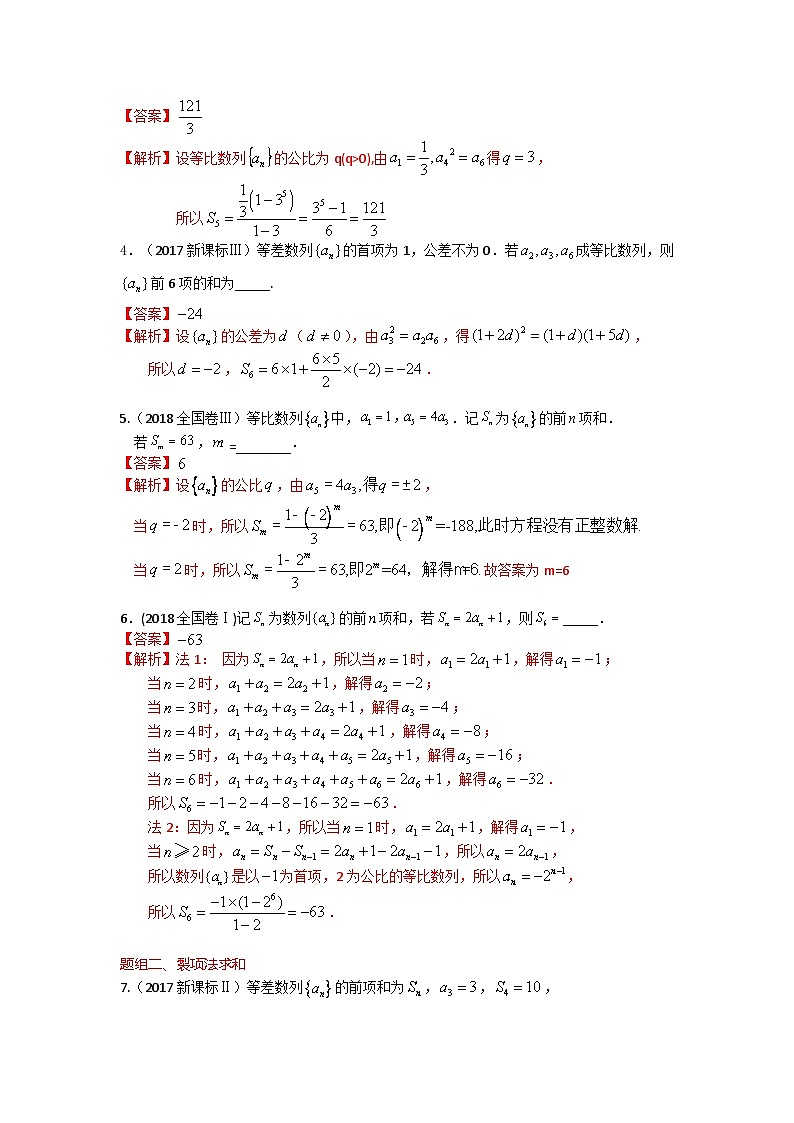 【答案】121/3
【解析】设等比数列{aₙ}的公比为 q(q>0),由a₁ = 1/3, a₄² = a₆得q = 3，
所以S₅ = (1/3(1−3⁵))/(1−3) = (3⁵−1)/6 = 121/3
4．（2017 新课标Ⅲ）等差数列{aₙ}的首项为 1，公差不为 0．若a₂, a₃, a₆成等比数列，则
{aₙ}前 6 项的和为_____.
【答案】−24
【解析】设{aₙ}的公差为d（d ≠ 0），由a₃² = a₂a₆，得(1+2d)² = (1+d)(1+5d)，
所以d = −2，S₆ = 6×1+(6×5)/2×(−2) = −24．
5.（2018 全国卷Ⅲ）等比数列{aₙ}中，a₁ = 1, a₅ = 4a₃．记Sₙ为{aₙ}的前n项和．
若Sₘ = 63，m =________．
【答案】6
【解析】设{aₙ}的公比q，由a₅ = 4a₃,得q = ±2，
当q = -2时，所以Sₘ = (1-(-2)ᵐ)/3 = 63,即(-2)ᵐ=-188,此时方程没有正整数解.
当q = 2时，所以Sₘ = (1-2ᵐ)/3 = 63,即2ᵐ=64，解得m=6.故答案为 m=6
6．(2018 全国卷Ⅰ)记Sₙ为数列{aₙ}的前n项和，若Sₙ = 2aₙ+1，则S₆ = _____．
【答案】−63
【解析】法 1： 因为Sₙ = 2aₙ+1，所以当n = 1时，a₁ = 2a₁+1，解得a₁ = −1；
当n = 2时，a₁+a₂ = 2a₂+1，解得a₂ = −2；
当n = 3时，a₁+a₂+a₃ = 2a₃+1，解得a₃ = −4；
当n = 4时，a₁+a₂+a₃+a₄ = 2a₄+1，解得a₄ = −8；
当n = 5时，a₁+a₂+a₃+a₄+a₅ = 2a₅+1，解得a₅ = −16；
当n = 6时，a₁+a₂+a₃+a₄+a₅+a₆ = 2a₆+1，解得a₆ = −32．
所以S₆ = −1−2−4−8−16−32 = −63．
法 2：因为Sₙ = 2aₙ+1，所以当n = 1时，a₁ = 2a₁+1，解得a₁ = −1，
当n⩾2时，aₙ = Sₙ−Sₙ₋₁ = 2aₙ+1−2aₙ₋₁−1，所以aₙ = 2aₙ₋₁，
所以数列{aₙ}是以−1为首项，2 为公比的等比数列，所以aₙ = −2ⁿ⁻¹，
所以S₆ = (−1×(1−2⁶))/(1−2) = −63．
题组二、裂项法求和
7.（2017 新课标Ⅱ）等差数列{aₙ}的前项和为Sₙ，a₃ = 3，S₄ = 10，